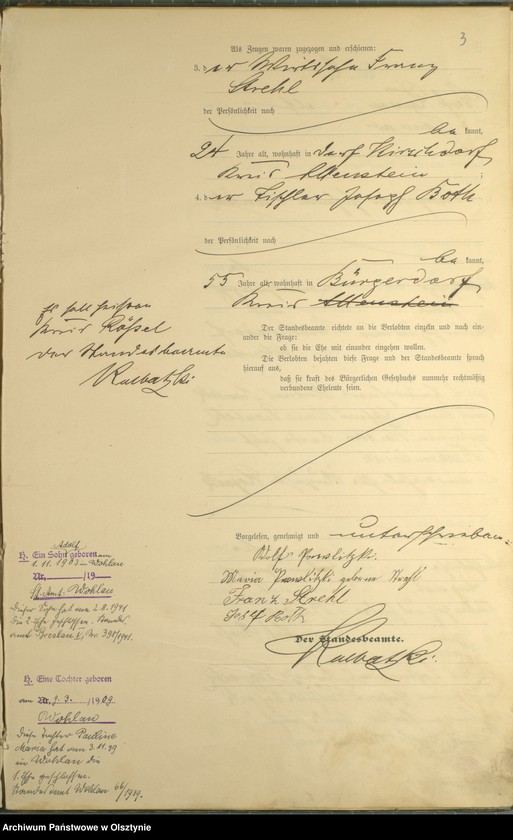 3
Als Zeugen waren zugezogen und erschienen:
3. der Wirtssohn Franz
Strehl
der Persönlichkeit nach
be kannt,
24 Jahre alt, wohnhaft in Dorf Hirschdorf,
Kreis Allenstein ;
4. der Tischler Joseph Both
der Persönlichkeit nach
be kannt,
55 Jahre alt, wohnhaft in Bürgerdorf,
Kreis Allenstein
Es soll heissen
Kreis Rößel
Der Standesbeamte
Kalbatzki.
Der Standesbeamte richtete an die Verlobten einzeln und nach ein-
ander die Frage:
ob sie die Ehe mit einander eingehen wollen.
Die Verlobten bejahten diese Frage und der Standesbeamte sprach
hierauf aus,
daß sie kraft des Bürgerlichen Gesetzbuchs nunmehr rechtmäßig
verbundene Eheleute seien.
Vorgelesen, genehmigt und unterschrieben.
Maria geborene Strehl
Franz Strehl
Both
Der Standesbeamte.
Kalbatzki.
H. Ein Sohn Adolf geboren am
1.11.1903 – Wohlau
Nr. /19
St. Amt. Wohlau
Dieser Sohn hat am 2.8.1941
die Ehe geschlossen. Standes
amt Breslau I, Nr. 1941.
H. Eine Tochter geboren
am Nr. 9.3. /1909
Wohlau
Diese Tochter Pauline
Maria hat am 3.11.39
in Wohlau die
1. Ehe geschlossen.
Standesamt Wohlau 66/1939.
Archiwum Państwowe w Olsztynie